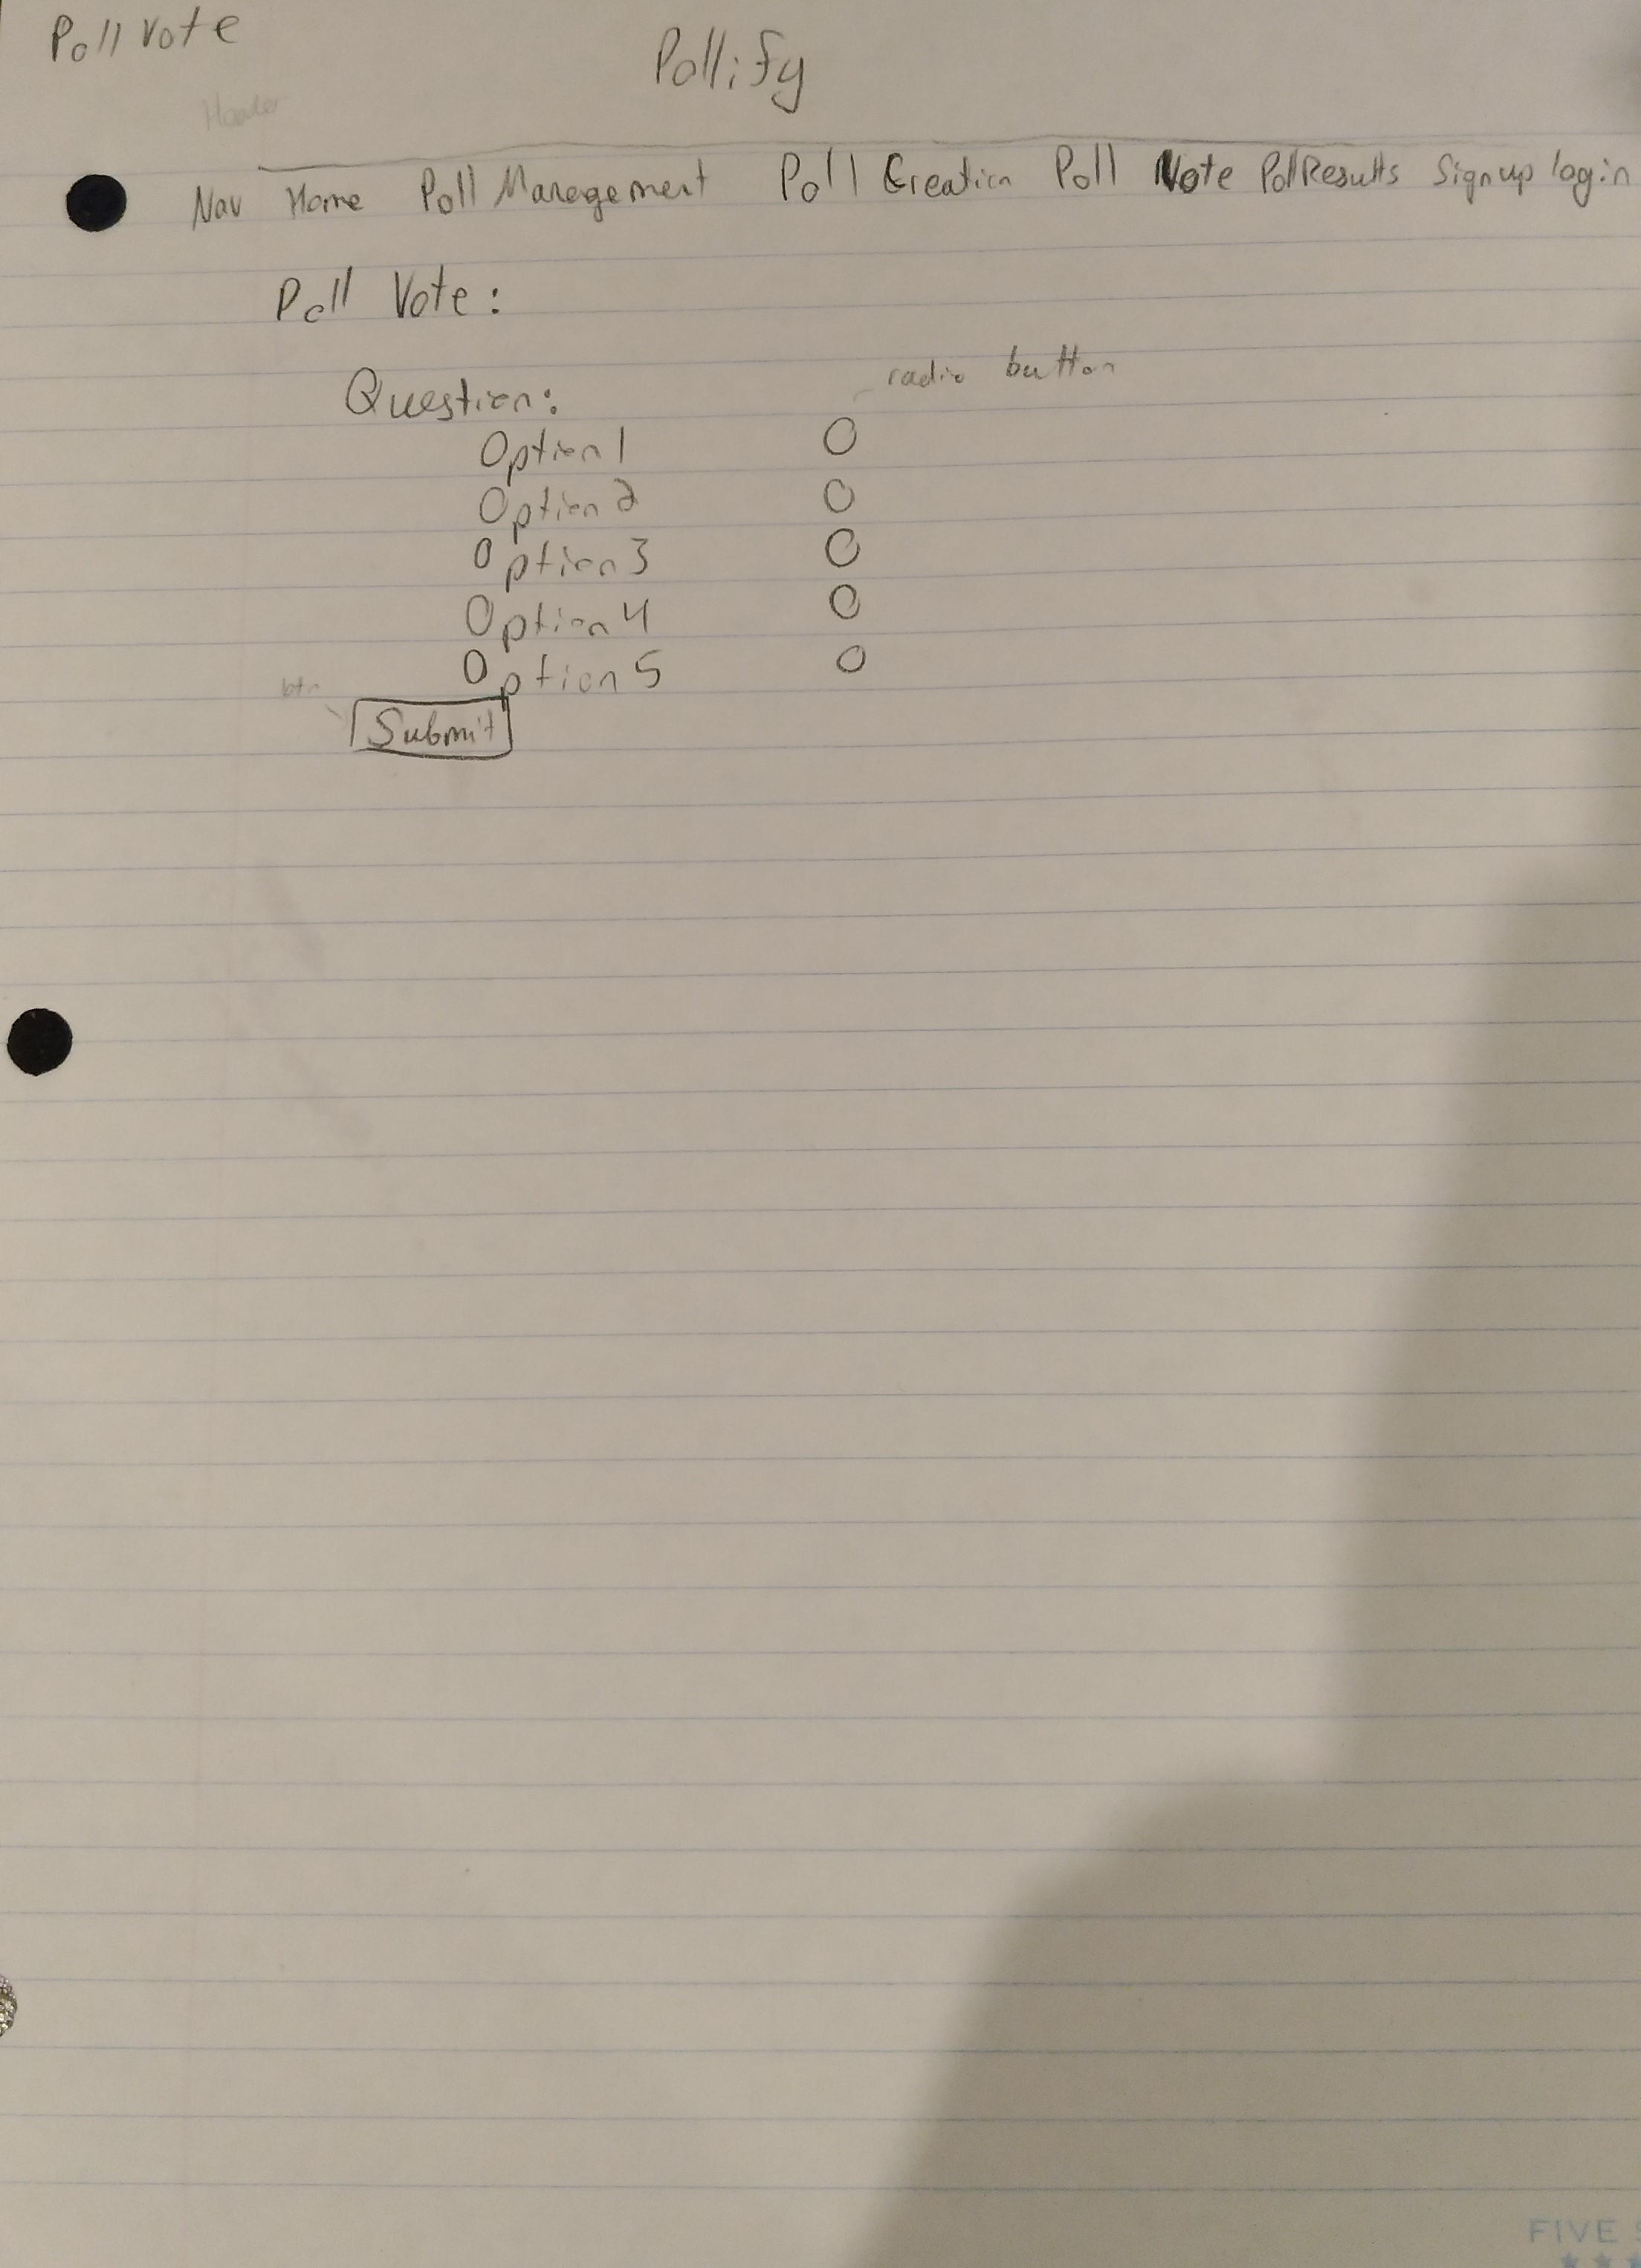 Poll Vote
Pollify
Header
Nav Home Poll Management Poll Creation Poll Vote Poll Results Sign up login
Poll Vote:
radio button
Question:
Option 1
Option 2
Option 3
Option 4
Option 5
btn
Submit
FIVE S